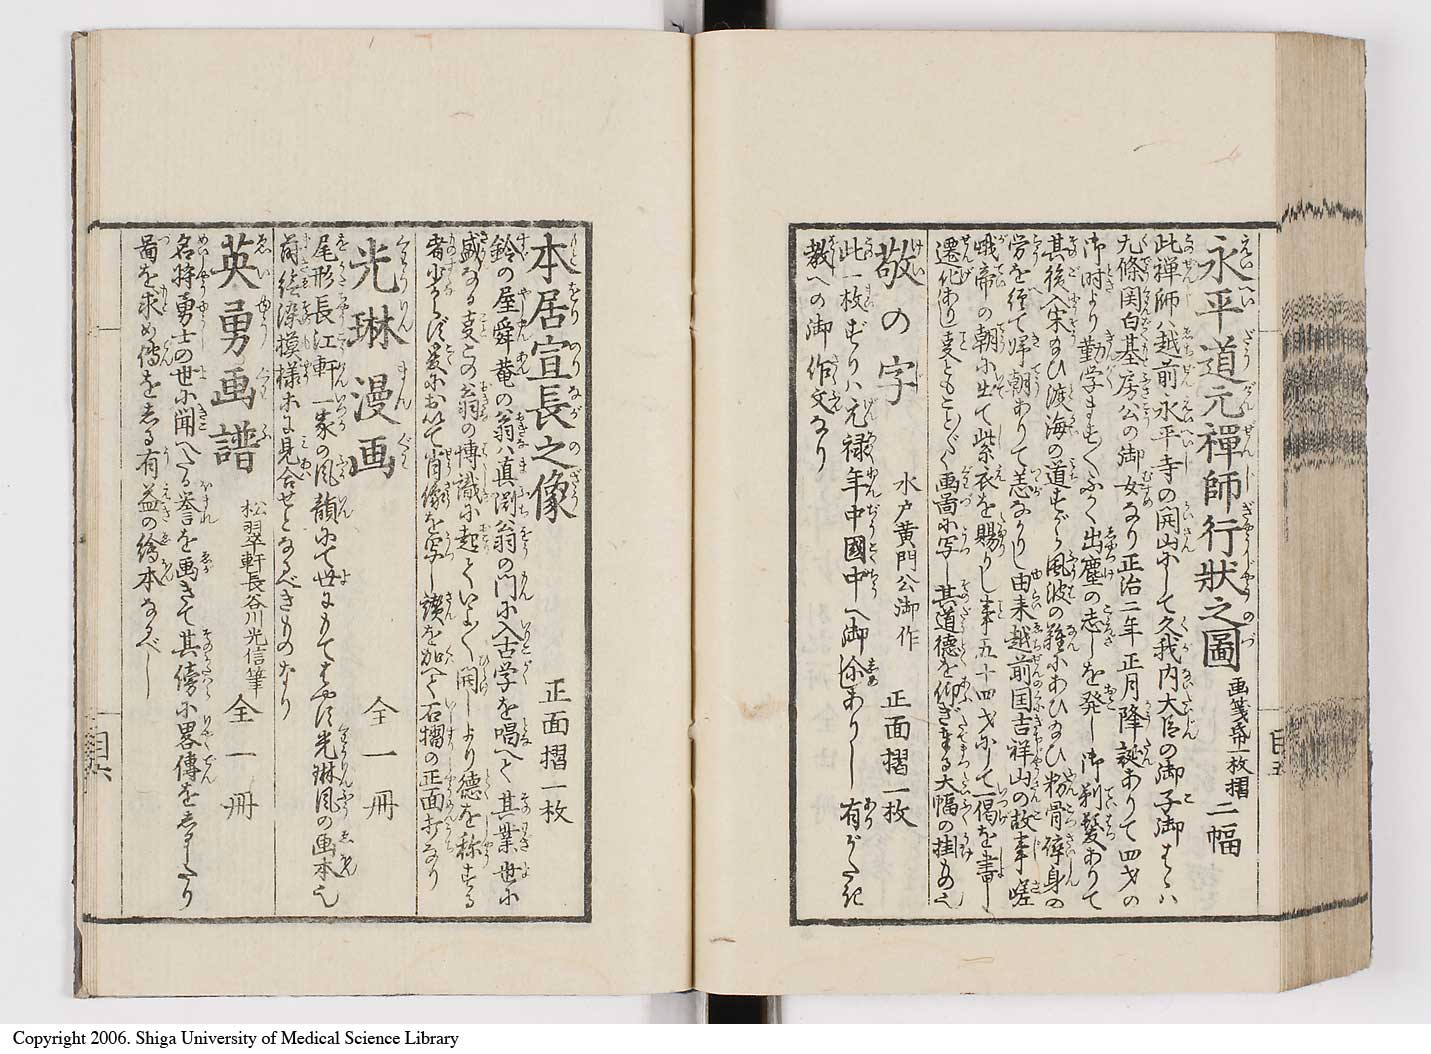 永平道元禅師行状之圖 画箋帋一枚摺 二幅
此禅師ハ越前永平寺の開山にして久我内大臣の御子御はゝハ
九條関白基房公の御女なり正治二年正月降誕ありて四才の
御時より勤学まし〳〵ふかく出塵の志しを発し御剃髪ありて
其後入宋なひ渡海の道すがら風波の難にあひなひ粉骨砕身の
労を経て帰朝ありて恙なかりし由来越前国吉祥山の故事嵯
峨帝の朝に出て紫衣を賜りし事五十四才にて一偈を書し
遷化あり支ともこと〴〵く画啚に写し其道徳を仰ぎまる大幅の掛もの也
敬の字 水戸黄門公御作 正面摺一枚
此一枚ずりハ元禄年中國中へ御ありし有がたき
教への御作文なり
目五
本居宣長之像 正面摺一枚
鈴の屋舜菴の翁ハ真渕翁の門に入古学を唱へて其業世に
盛なる支この翁の博識に起ていよ〳〵開しより徳を称する
者少からず爰において肖像を写し讃を加へて石摺の正面打なり
光琳漫画 全一冊
尾形長江軒一家の風韻にて世にもてはやす光琳風の画本也
蒔絵染模様等に見合せとなるべきものなり
英勇画譜 松翠軒長谷川光信筆 全一冊
名将勇士の世に聞へたる誉を画きて其傍に畧傳をしるしたり
啚を求め傳をしる有益の繪本なるべし
目六